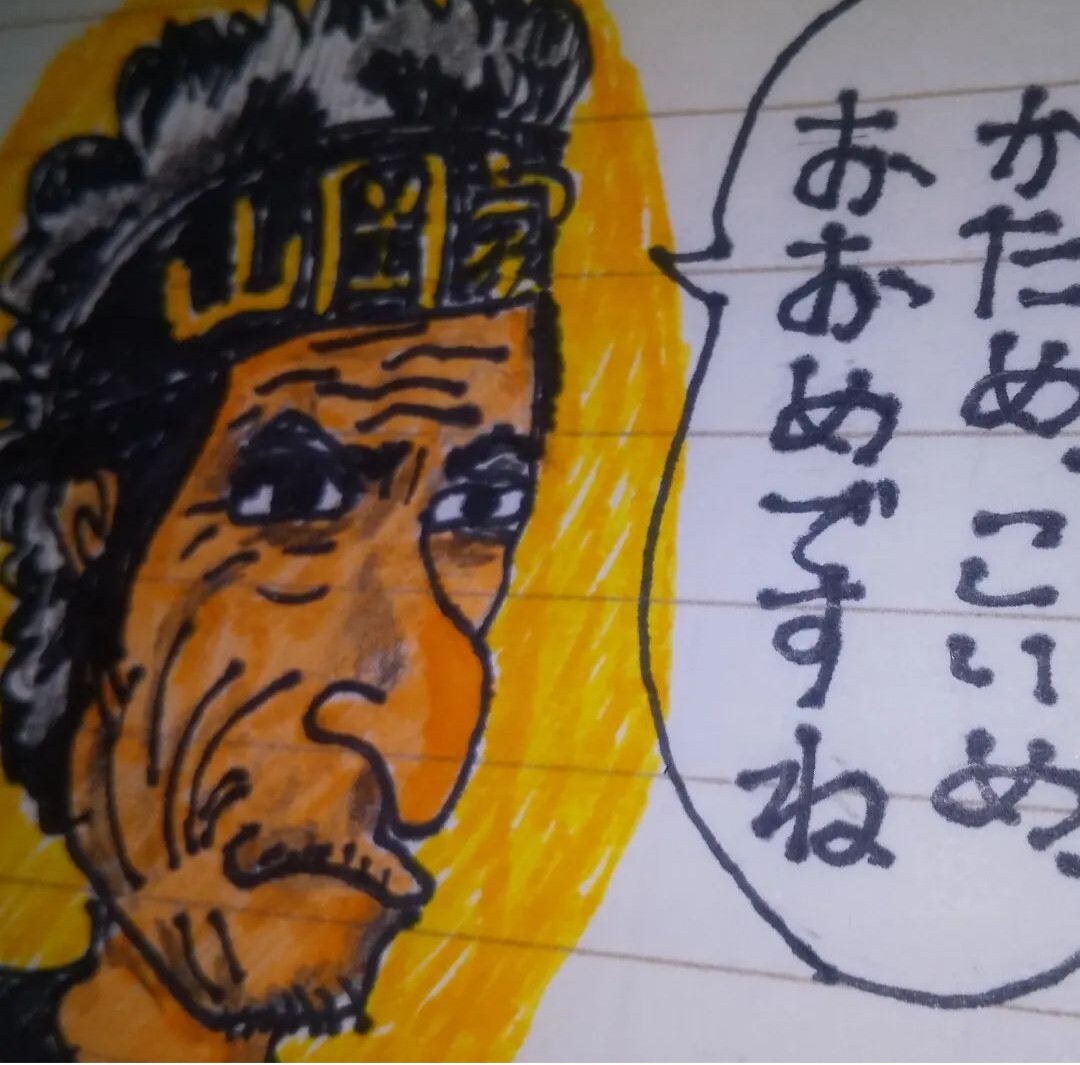 山岡家
かため、こいめ、
おおめですね